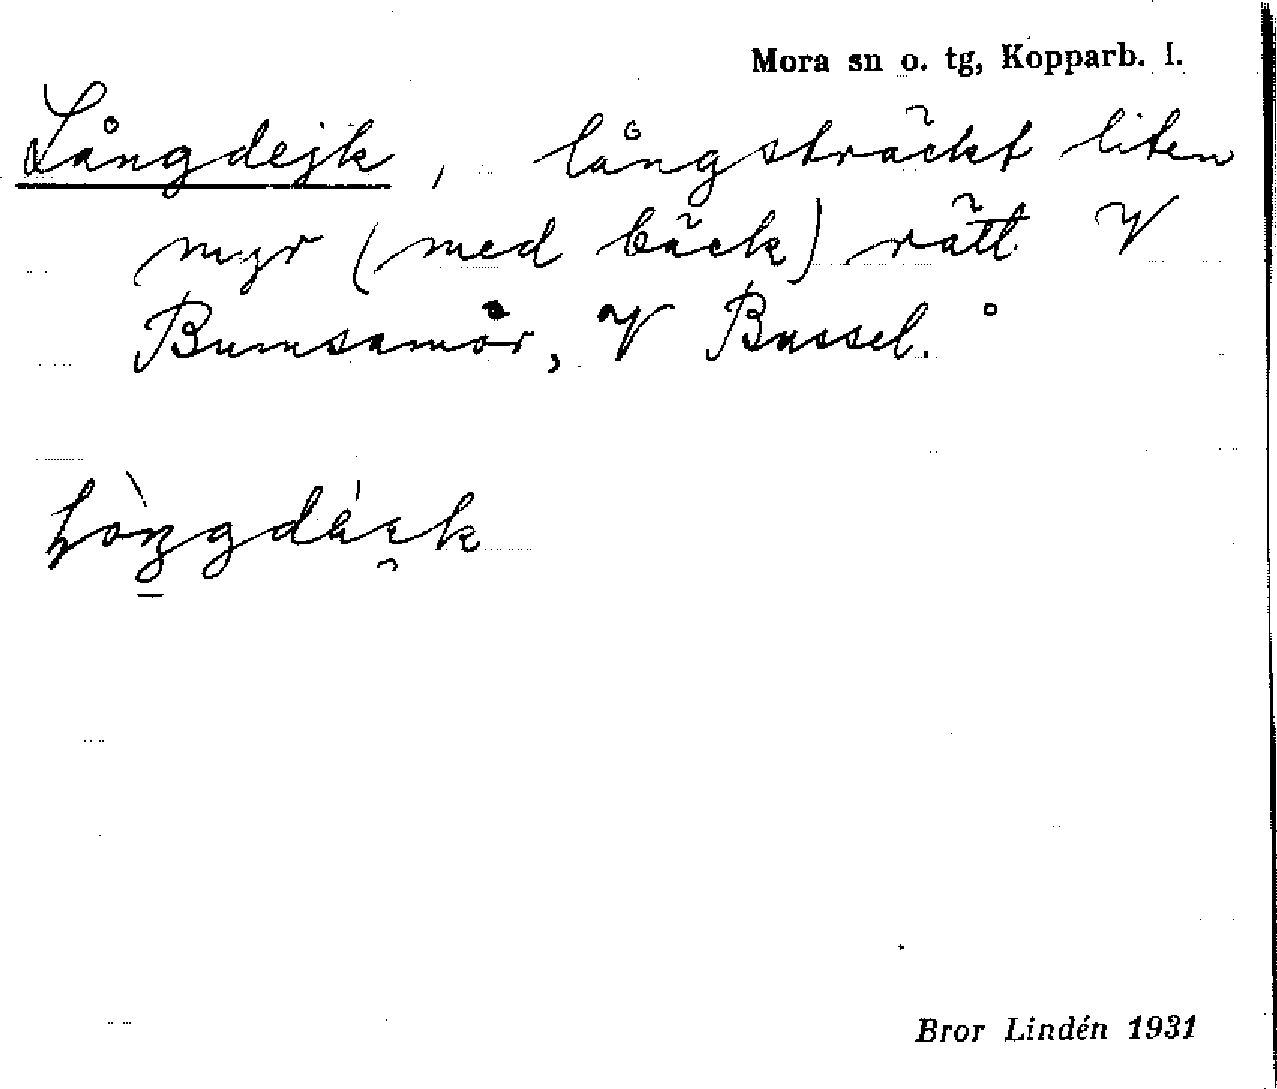 Mora sn o. tg, Kopparb. l.
Långdejk, långsträckt liten
myr (med bäck) rätt V
Bumsamår, V Bussel.
Bror Lindén 1931